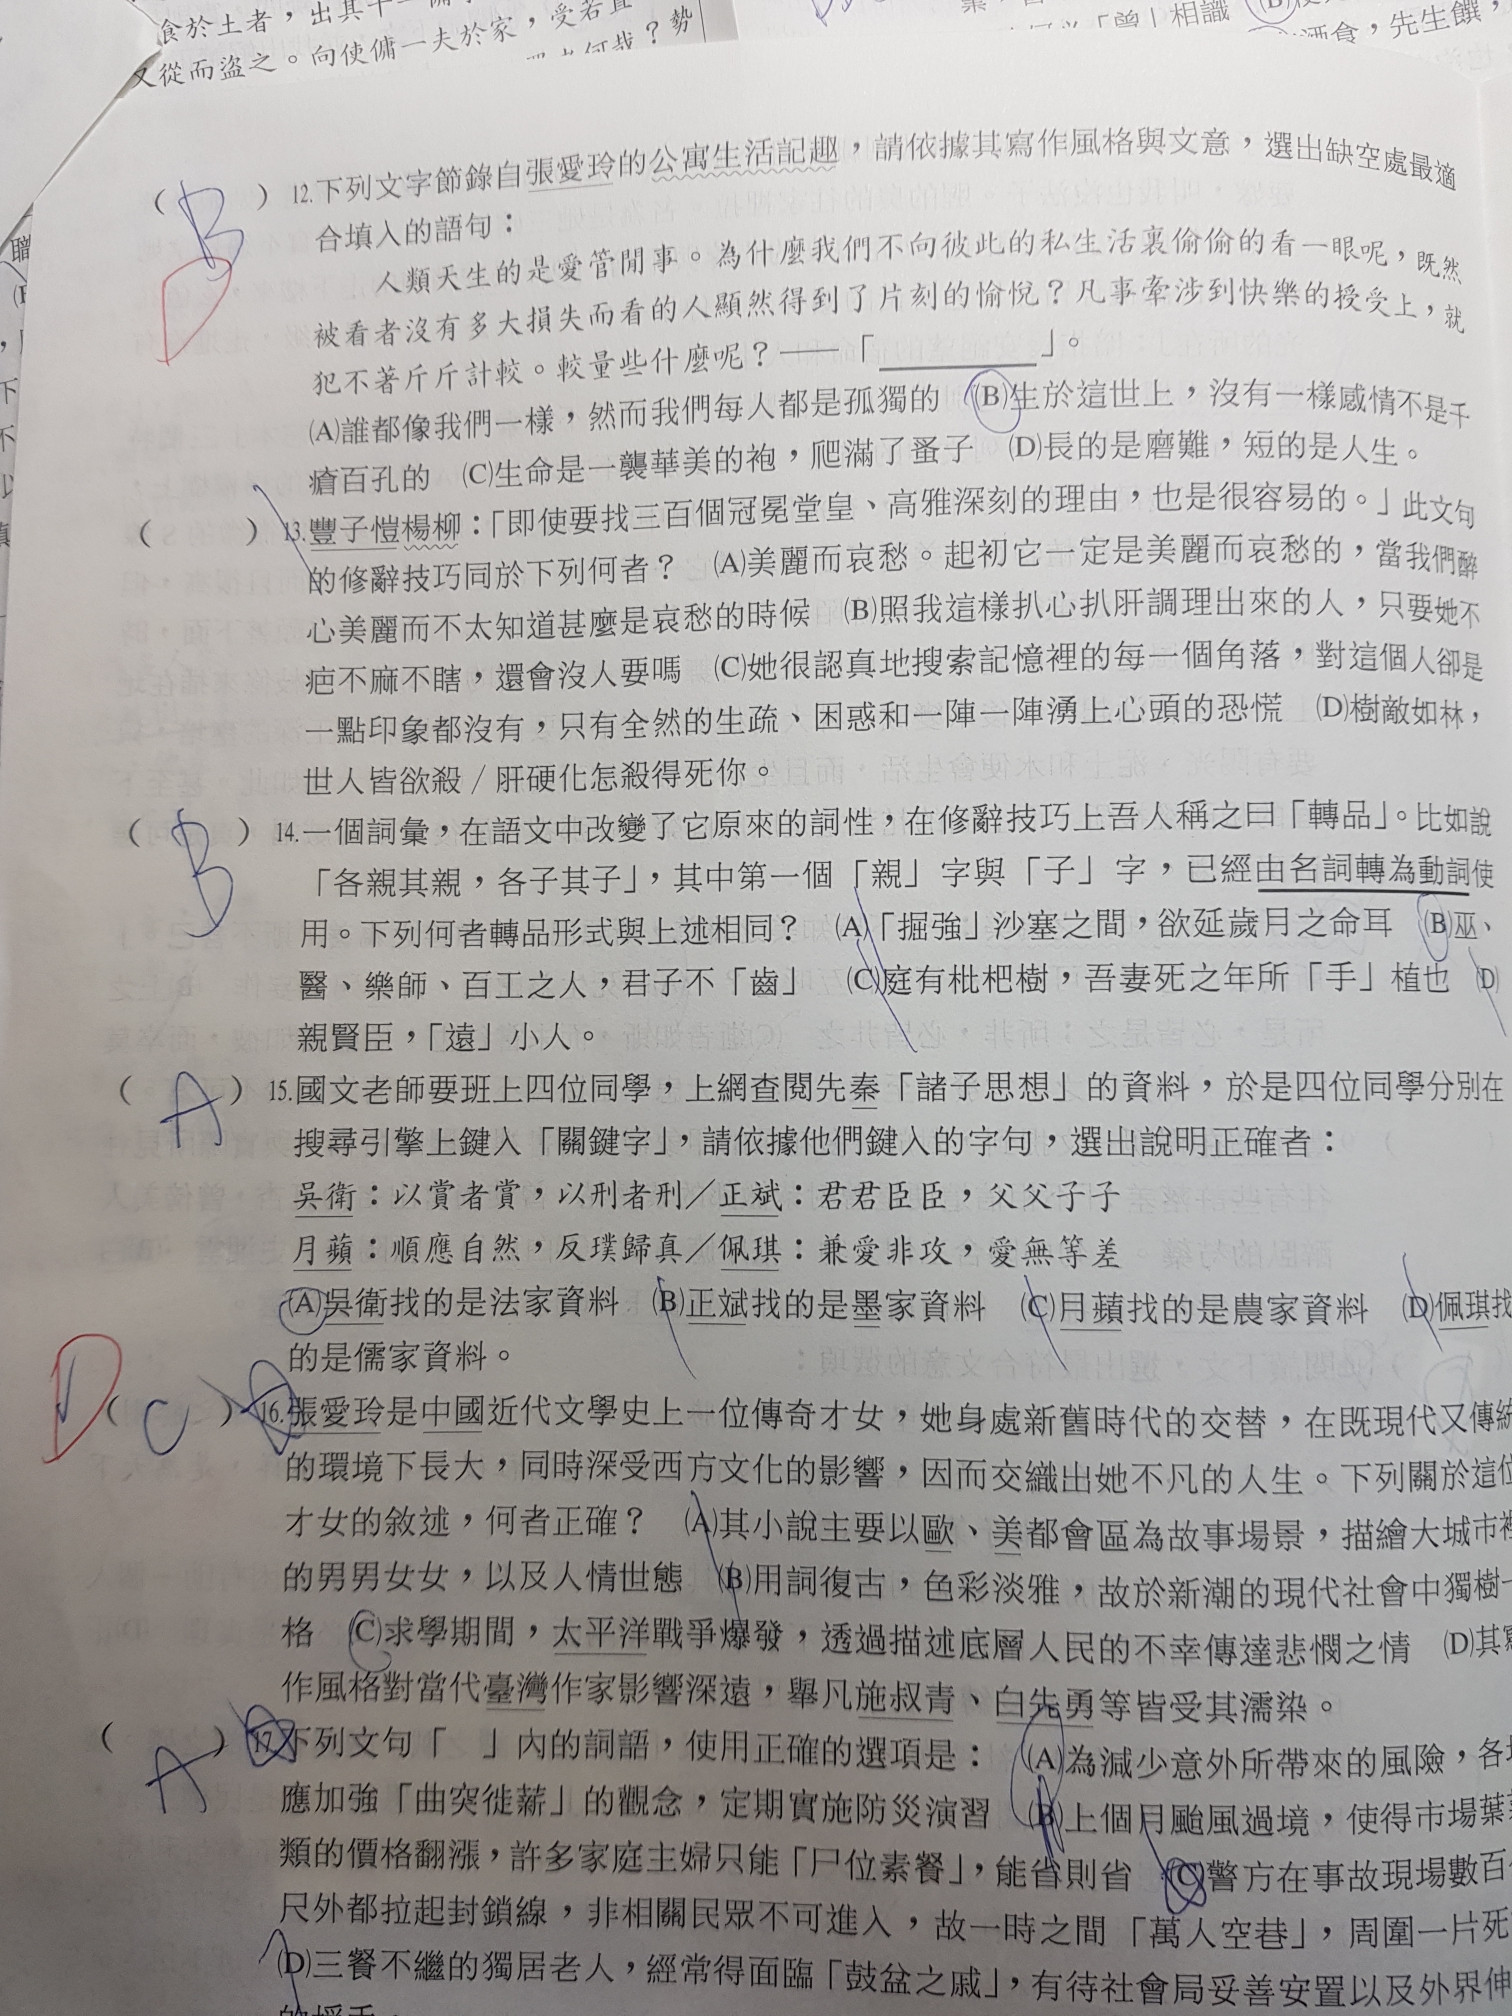 食於土者，出其十一傭
又從而盜之。向使傭一夫於家，受若直
何哉？勢
「曾」相識
酒食，先生饌，
( B ) 12.下列文字節錄自張愛玲的公寓生活記趣，請依據其寫作風格與文意，選出缺空處最適
合填入的語句：
D
人類天生的是愛管閒事。為什麼我們不向彼此的私生活裏偷偷的看一眼呢，既然
被看者沒有多大損失而看的人顯然得到了片刻的愉悅？凡事牽涉到快樂的授受上，就
犯不著斤斤計較。較量些什麼呢？——「＿＿＿＿」。
(A)誰都像我們一樣，然而我們每人都是孤獨的　(B)生於這世上，沒有一樣感情不是千
瘡百孔的　(C)生命是一襲華美的袍，爬滿了蚤子　(D)長的是磨難，短的是人生。
(　) 13.豐子愷楊柳：「即使要找三百個冠冕堂皇、高雅深刻的理由，也是很容易的。」此文句
的修辭技巧同於下列何者？　(A)美麗而哀愁。起初它一定是美麗而哀愁的，當我們醉
心美麗而不太知道甚麼是哀愁的時候　(B)照我這樣扒心扒肝調理出來的人，只要她不
疤不麻不瞎，還會沒人要嗎　(C)她很認真地搜索記憶裡的每一個角落，對這個人卻是
一點印象都沒有，只有全然的生疏、困惑和一陣一陣湧上心頭的恐慌　(D)樹敵如林，
世人皆欲殺／肝硬化怎殺得死你。
( B ) 14.一個詞彙，在語文中改變了它原來的詞性，在修辭技巧上吾人稱之曰「轉品」。比如說
「各親其親，各子其子」，其中第一個「親」字與「子」字，已經由名詞轉為動詞使
用。下列何者轉品形式與上述相同？　(A)「掘強」沙塞之間，欲延歲月之命耳　(B)巫、
醫、樂師、百工之人，君子不「齒」　(C)庭有枇杷樹，吾妻死之年所「手」植也　(D)
親賢臣，「遠」小人。
( A ) 15.國文老師要班上四位同學，上網查閱先秦「諸子思想」的資料，於是四位同學分別在
搜尋引擎上鍵入「關鍵字」，請依據他們鍵入的字句，選出說明正確者：
吳衛：以賞者賞，以刑者刑／正斌：君君臣臣，父父子子
月蘋：順應自然，反璞歸真／佩琪：兼愛非攻，愛無等差
(A)吳衛找的是法家資料　(B)正斌找的是墨家資料　(C)月蘋找的是農家資料　(D)佩琪找
的是儒家資料。
D ( C ) 16.張愛玲是中國近代文學史上一位傳奇才女，她身處新舊時代的交替，在既現代又傳統
的環境下長大，同時深受西方文化的影響，因而交織出她不凡的人生。下列關於這位
才女的敘述，何者正確？　(A)其小說主要以歐、美都會區為故事場景，描繪大城市裡
的男男女女，以及人情世態　(B)用詞復古，色彩淡雅，故於新潮的現代社會中獨樹一
格　(C)求學期間，太平洋戰爭爆發，透過描述底層人民的不幸傳達悲憫之情　(D)其寫
作風格對當代臺灣作家影響深遠，舉凡施叔青、白先勇等皆受其濡染。
( A ) 17.下列文句「　」內的詞語，使用正確的選項是：　(A)為減少意外所帶來的風險，各
應加強「曲突徙薪」的觀念，定期實施防災演習　(B)上個月颱風過境，使得市場葉
類的價格翻漲，許多家庭主婦只能「尸位素餐」，能省則省　(C)警方在事故現場數百
尺外都拉起封鎖線，非相關民眾不可進入，故一時之間「萬人空巷」，周圍一片死
(D)三餐不繼的獨居老人，經常得面臨「鼓盆之戚」，有待社會局妥善安置以及外界伸
的援手。